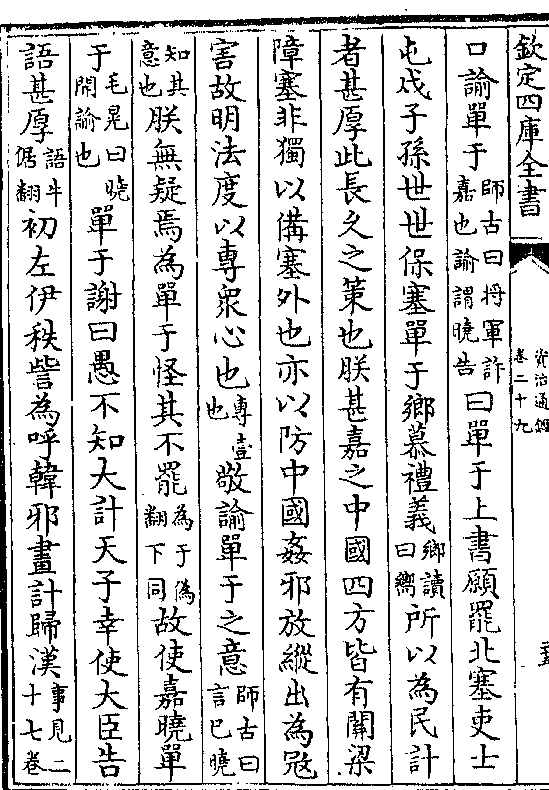 欽定四庫全書
資治通鑑
卷二十九
口諭單于師古曰將軍許嘉也諭謂曉告曰單于上書願罷北塞吏士
屯戍子孫世世保塞單于鄉慕禮義鄉讀曰嚮所以為民計
者甚厚此長久之策也朕甚嘉之中國四方皆有關梁
障塞非獨以備塞外也亦以防中國姦邪放縱出為冦
害故明法度以專衆心也專壹也敬諭單于之意師古曰言已曉
知其意也朕無疑焉為單于怪其不罷為于偽翻下同故使嘉曉單
于毛晃曰曉開諭也單于謝曰愚不知大計天子幸使大臣告
語甚厚語牛倨翻初左伊秩訾為呼韓邪畫計歸漢事見二十七卷